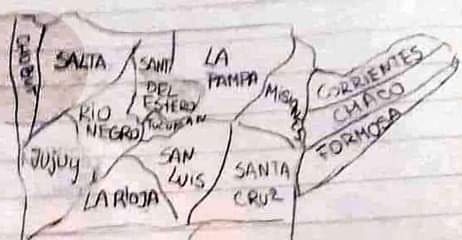 SALTA
SANTI
DEL
ESTERO
LA
PAMPA
MISIONES
CORRIENTES
CHACO
FORMOSA
RIO
NEGRO
TUCUMAN
JUJUY
SAN
LUIS
SANTA
CRUZ
LA RIOJA